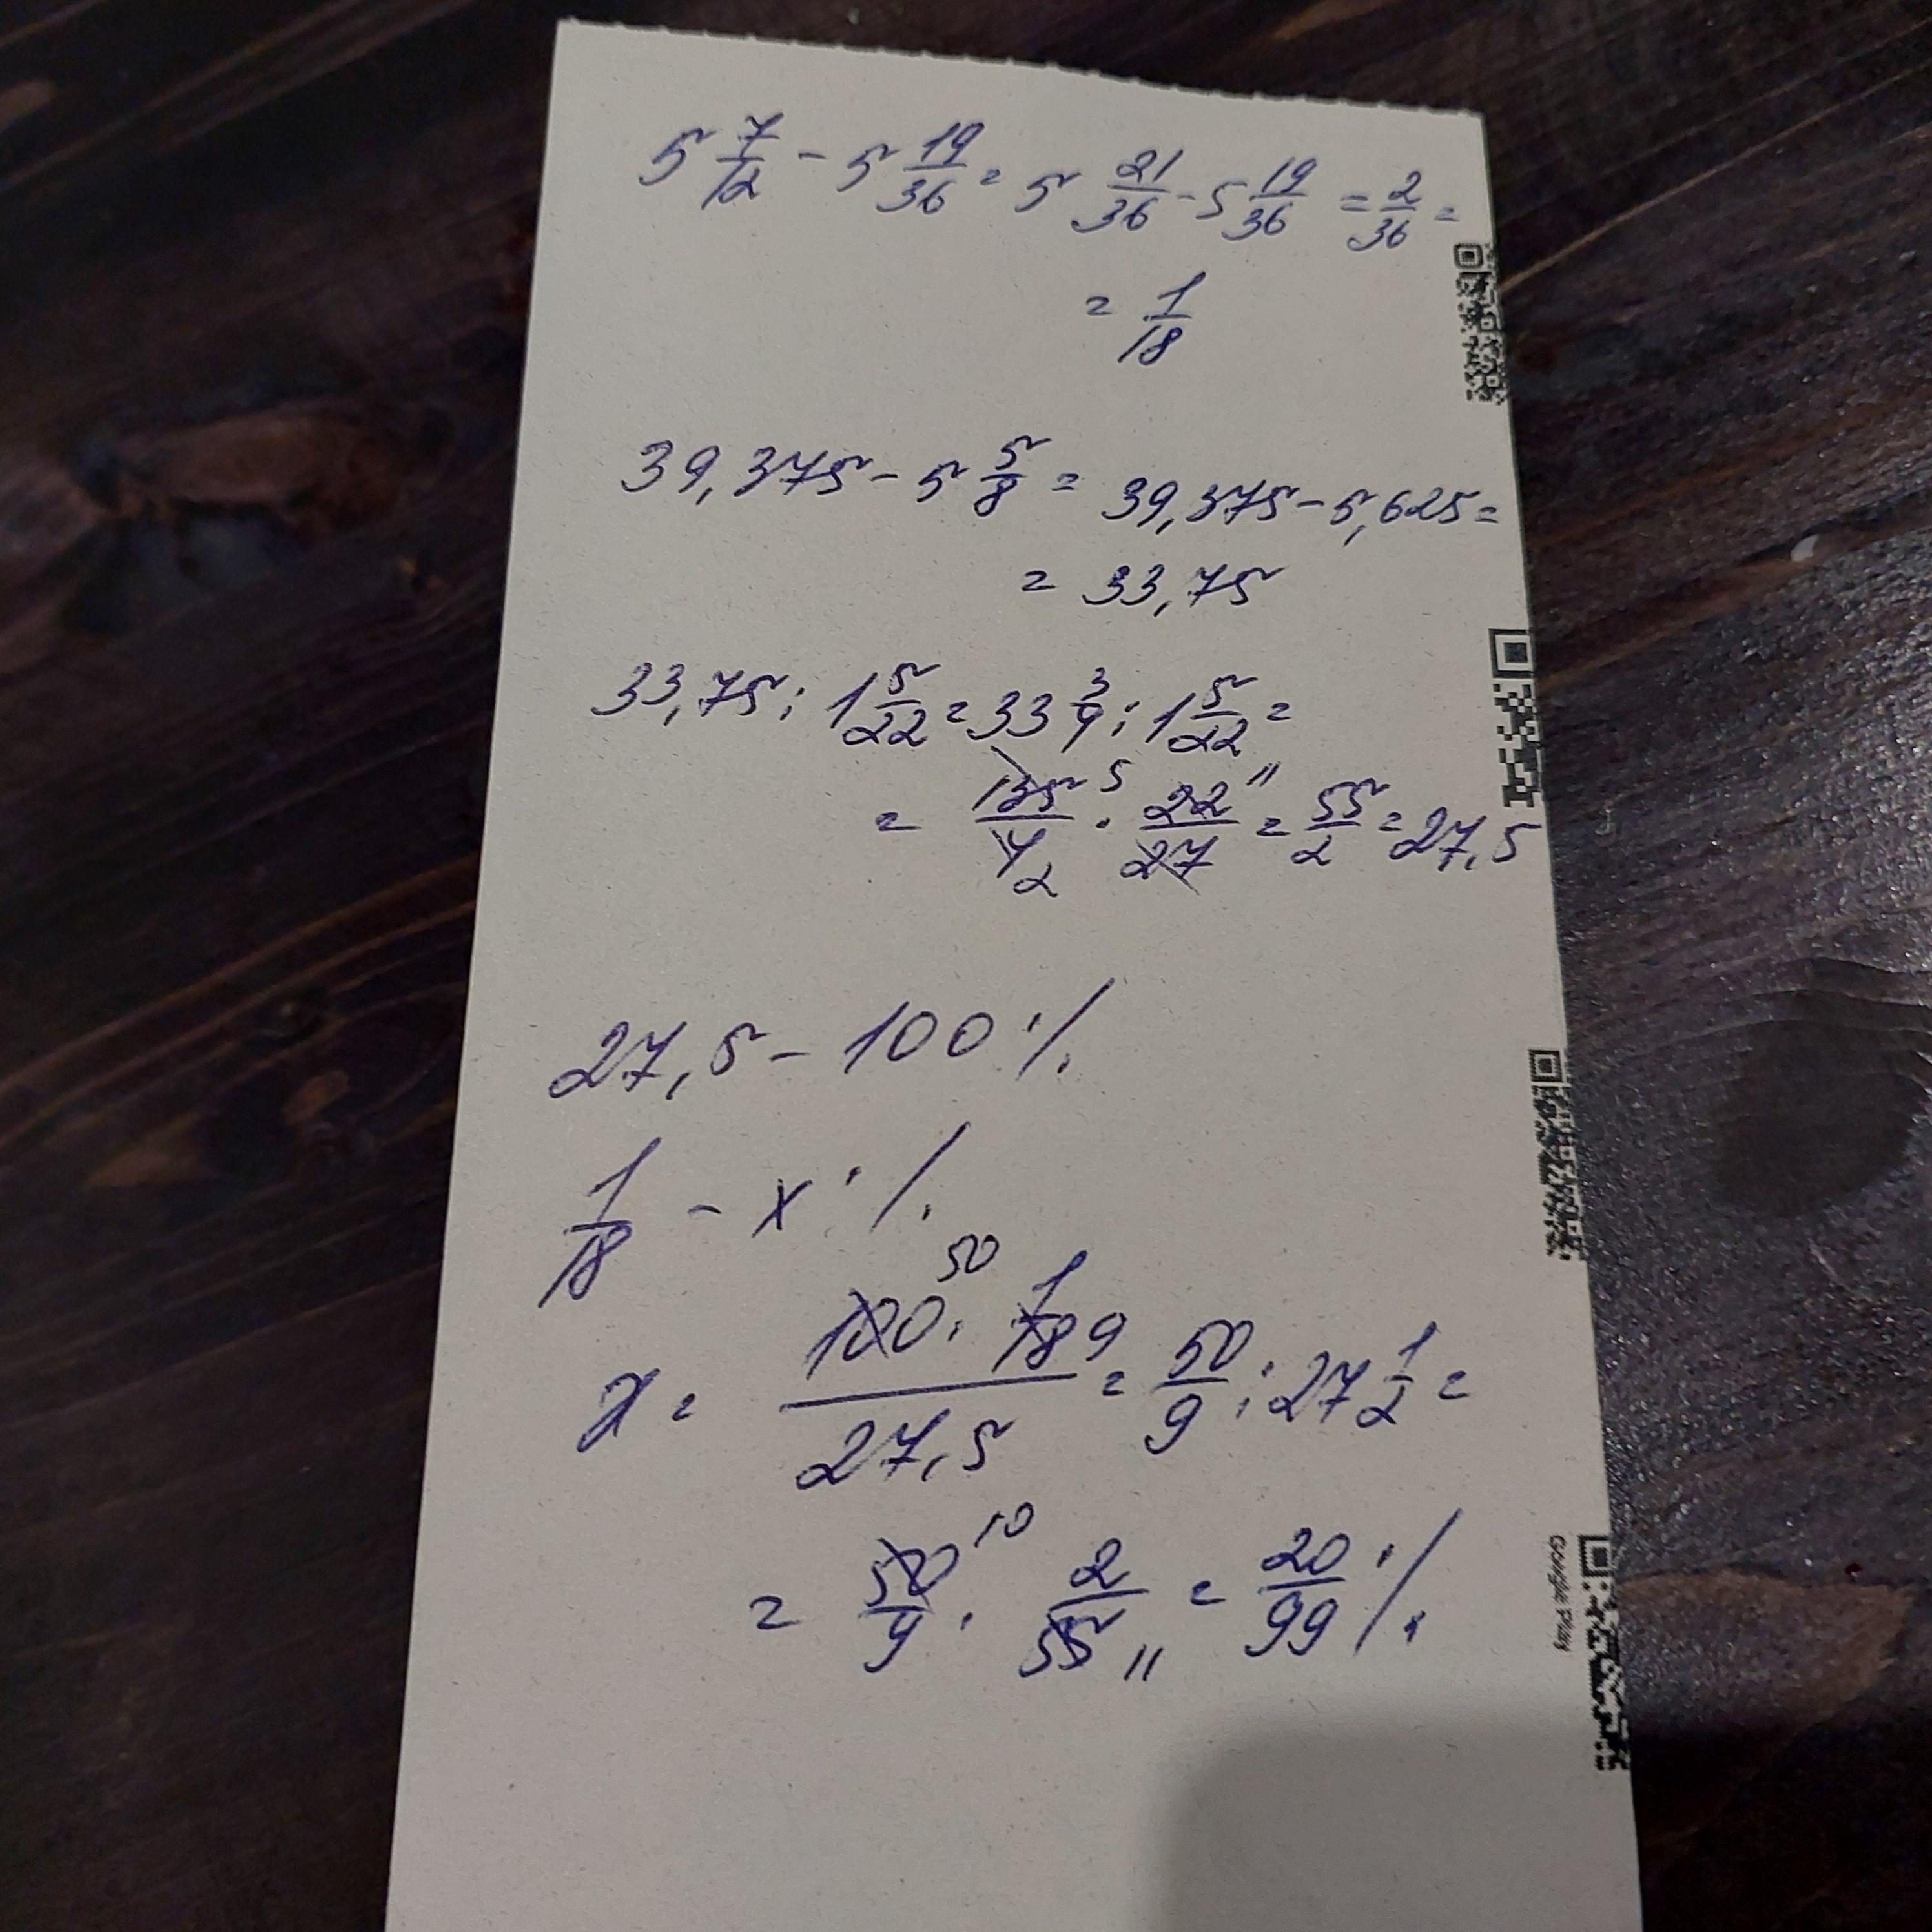 5 7/12 - 5 19/36 = 5 21/36 - 5 19/36 = 2/36 =
= 1/18
39,375 - 5 5/8 = 39,375 - 5,625 =
= 33,75
33,75 : 1 5/22 = 33 3/4 : 1 5/22 =
= 135/4 5 2 · 22/27 11 = 55/2 = 27,5
27,5 - 100 %
1/18 - x %
x = 100 50 · 1/18 9 / 27,5 = 50/9 : 27 1/2 =
= 50/9 10 · 2/55 11 = 20/99 %
Google Play